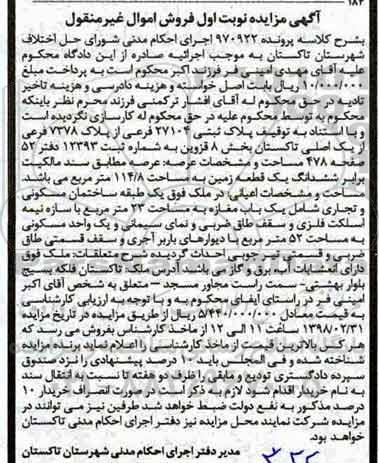 ۱۸۲
آگهی مزایده نوبت اول فروش اموال غیر منقول
بشرح کلاسه پرونده ۹۷۰۹۲۲ اجرای احکام مدنی شورای حل اختلاف
شهرستان تاکستان به موجب اجرائیه صادره از این دادگاه محکوم
علیه آقای مهدی امینی فر فرزند اکبر محکوم است به پرداخت مبلغ
۱۰/۰۰۰/۰۰۰ ریال بابت اصل خواسته و هزینه دادرسی و هزینه تاخیر
تادیه در حق محکوم له آقای افشار ترکمنی فرزند محرم نظر باینکه
محکوم به توسط محکوم علیه در حق محکوم له کارسازی نگردیده است
و با استناد به توقیف پلاک ثبتی ۲۷۱۰۴ فرعی از پلاک ۷۳۷۸ فرعی
از یک اصلی تاکستان بخش ۸ قزوین به شماره ثبت ۱۲۳۹۳ دفتر ۵۲
صفحه ۴۷۸ مساحت و مشخصات عرصه: عرصه مطابق سند مالکیت
برابر ششدانگ یک قطعه زمین به مساحت ۱۱۴/۸ متر مربع می باشد.
مساحت و مشخصات اعیانی: در ملک فوق یک طبقه ساختمان مسکونی
و تجاری شامل یک باب مغازه به مساحت ۲۳ متر مربع با سازه نیمه
اسکلت فلزی و سقف طاق ضربی و نمای سیمانی و یک واحد مسکونی
به مساحت ۵۲ متر مربع با دیوارهای باربر آجری و سقف قسمتی طاق
ضربی و قسمتی تیر چوبی احداث گردیده شرح متعلقات: ملک فوق
دارای انشعابات آب، برق و گاز می باشد آدرس ملک: تاکستان فلکه بسیج
بلوار بهشتی- سمت راست مجاور مسجد – متعلق به شخص آقای اکبر
امینی فر در راستای ایفای محکوم به و با توجه به ارزیابی کارشناسی
به قیمت معادل ۵/۴۴۰/۰۰۰/۰۰۰ ریال از طریق مزایده در تاریخ مزایده
۱۳۹۸/۰۲/۳۱ ساعت ۱۱ الی ۱۲ از ماخذ کارشناس بفروش می رسد که
هر کس بالاترین قیمت از ماخذ کارشناسی را اعلام نماید برنده مزایده
شناخته شده و فی المجلس باید ۱۰ درصد پیشنهادی را نزد صندوق
سپرده دادگستری تودیع و مابقی را ظرف دو هفته تا نسبت به انتقال سند
به نام خریدار اقدام شود لازم به ذکر است در صورت انصراف خریدار ۱۰
درصد مذکور به نفع دولت ضبط خواهد شد طرفین نیز می توانند در
مزایده شرکت نمایند محل مزایده نیز دفتر اجرای احکام مدنی تاکستان
خواهد بود.
مدیر دفتر اجرای احکام مدنی شهرستان تاکستان